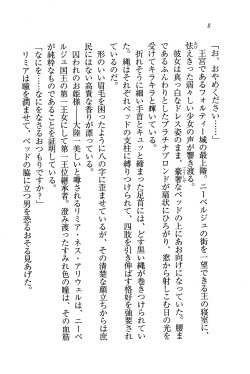 8
「お、おやめください……」
王宮であるフォルティー城の最上階。ニーベルジュの街を一望できる王の寝室に、
怯えきった弱々しい少女の声が響き渡る。
彼女は真っ白なドレス姿のまま、豪奢なベッドの上にあお向けになっていた。腰ま
で伸ばしたふわふわとしたプラチナブロンドが扇状にひろがり、窓から射しこむ日の光を
受けてキラキラと輝いている。
折れそうに細い手首とキュッと締まった足首には、どす黒い縄が巻きつけられてい
た。縄はそれぞれベッドの支柱に縛りつけられて、四肢を引き伸ばす格好を強要され
ているのだ。
形のいい眉毛を困ったように八の字に歪ませているが、その清楚な顔立ちからは庶
民にはない高貴な香りが漂っている。
リミア・ネス・アリウェルは、ニーベ
囚われのお姫様――大陸一美しいと噂される
ルジュ国王の第一王女にして第一王位継承者。澄み渡ったすみれ色の瞳は、その血筋
が純粋なものであることを証明している。
「なにを……なにをなさるおつもりですか？」
リミアは瞳を潤ませて、ベッドの脇に立つ男を恐るおそる見あげた。